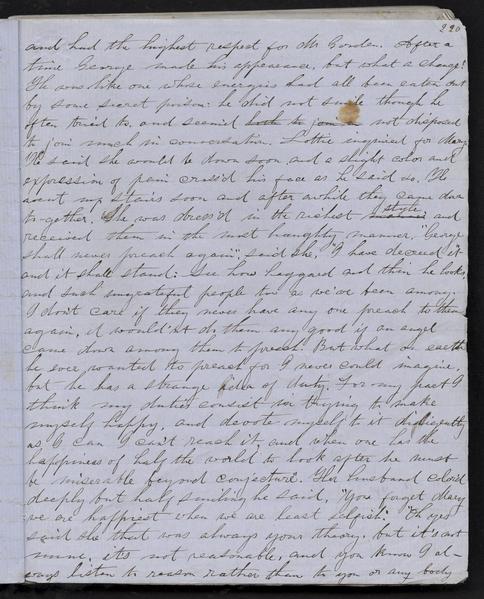 220
and had the highest respect for Mr Gorden. After a
time George made his appearance, but what a change!
He was like one whose energies had all been eaten out
by some secret poison: he did not smile though he
often tried to, and seemed loath to join in not disposed
to join much in conversation. Lottie enquired for Mary.
He said she would be down soon and a slight color and
expression of pain cross'd his face as he said so. He
went up stairs soon and after awhile they came down
to-gether. She was dress'd in the richest style and
received them in the most haughty manner. "George
shall never preach again," said she, "I have decreed it
and it shall stand: See how haggard and thin he looks,
and such ungrateful people too as we've been among.
I don't care if they never have any one preach to them
again, it would'nt do them any good if an angel
came down among them to preach. But what on earth
he ever wanted to preach for I never could imagine,
but he has a strange idea of duty. For my part I
think my duties consist in trying to make
myself happy, and devote myself to it diligently
as I can I can't reach it, and when one has the
happiness of half the world to look after he must
be miserable beyond conjecture. Her husband color'd
deeply but half smiling he said, "You forget Mary
we are happiest when we are least selfish." "Oh yes
said she that was always your theory, but it's not
mine, it's not reasonable, and you know I al-
ways listen to reason rather than to you or any body